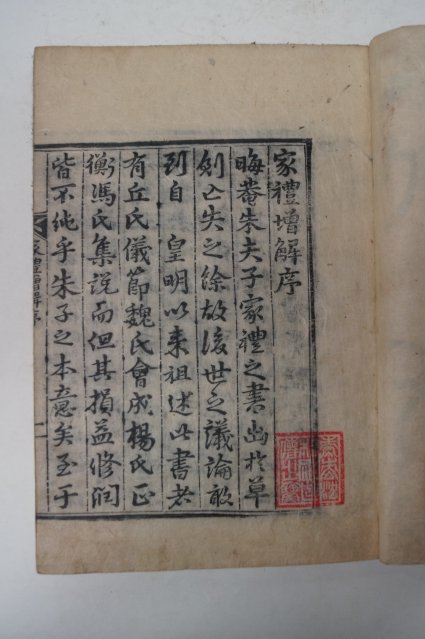 家禮增解序
晦菴朱夫子家禮之書出於草
創亡失之餘故後世之議論敢
到自 皇明以來祖述此書者
有丘氏儀節魏氏會成楊氏正
衡馮氏集說而但其損益修潤
皆不純乎朱子之本意矣至于
家禮增解序 一